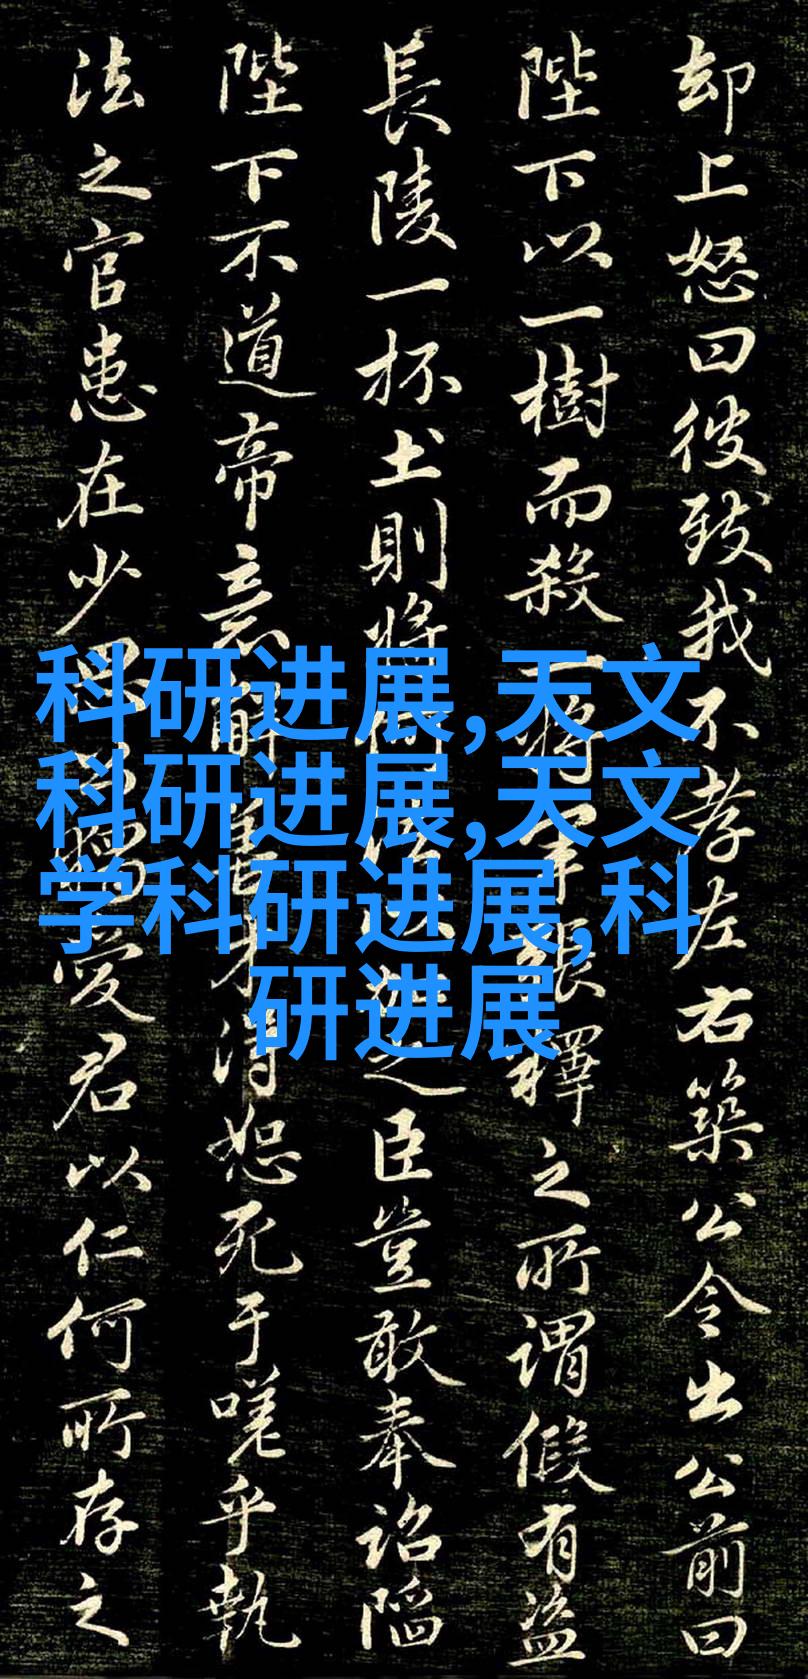 却上怒曰彼致我不孝左右築公令出公前曰
陛下以一樹而殺一将軍張釋之所謂假有盜
長陵一抔土則將法之臣豈敢奉詔陷
陛下不道帝意解善才得恕死于嗟乎執
法之官患在少恩愛君以仁何所存之
科研进展,天文
科研进展,天文
学科研进展,科
研进展